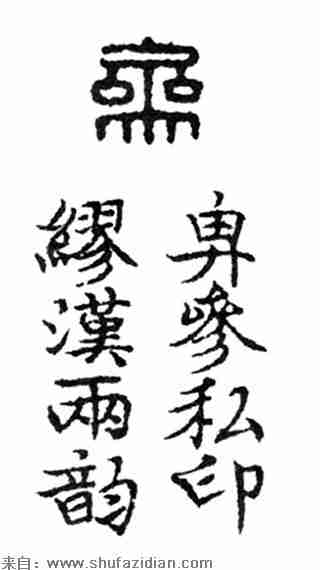 參私印
繆漢兩韵
来自：www.shufazidian.com